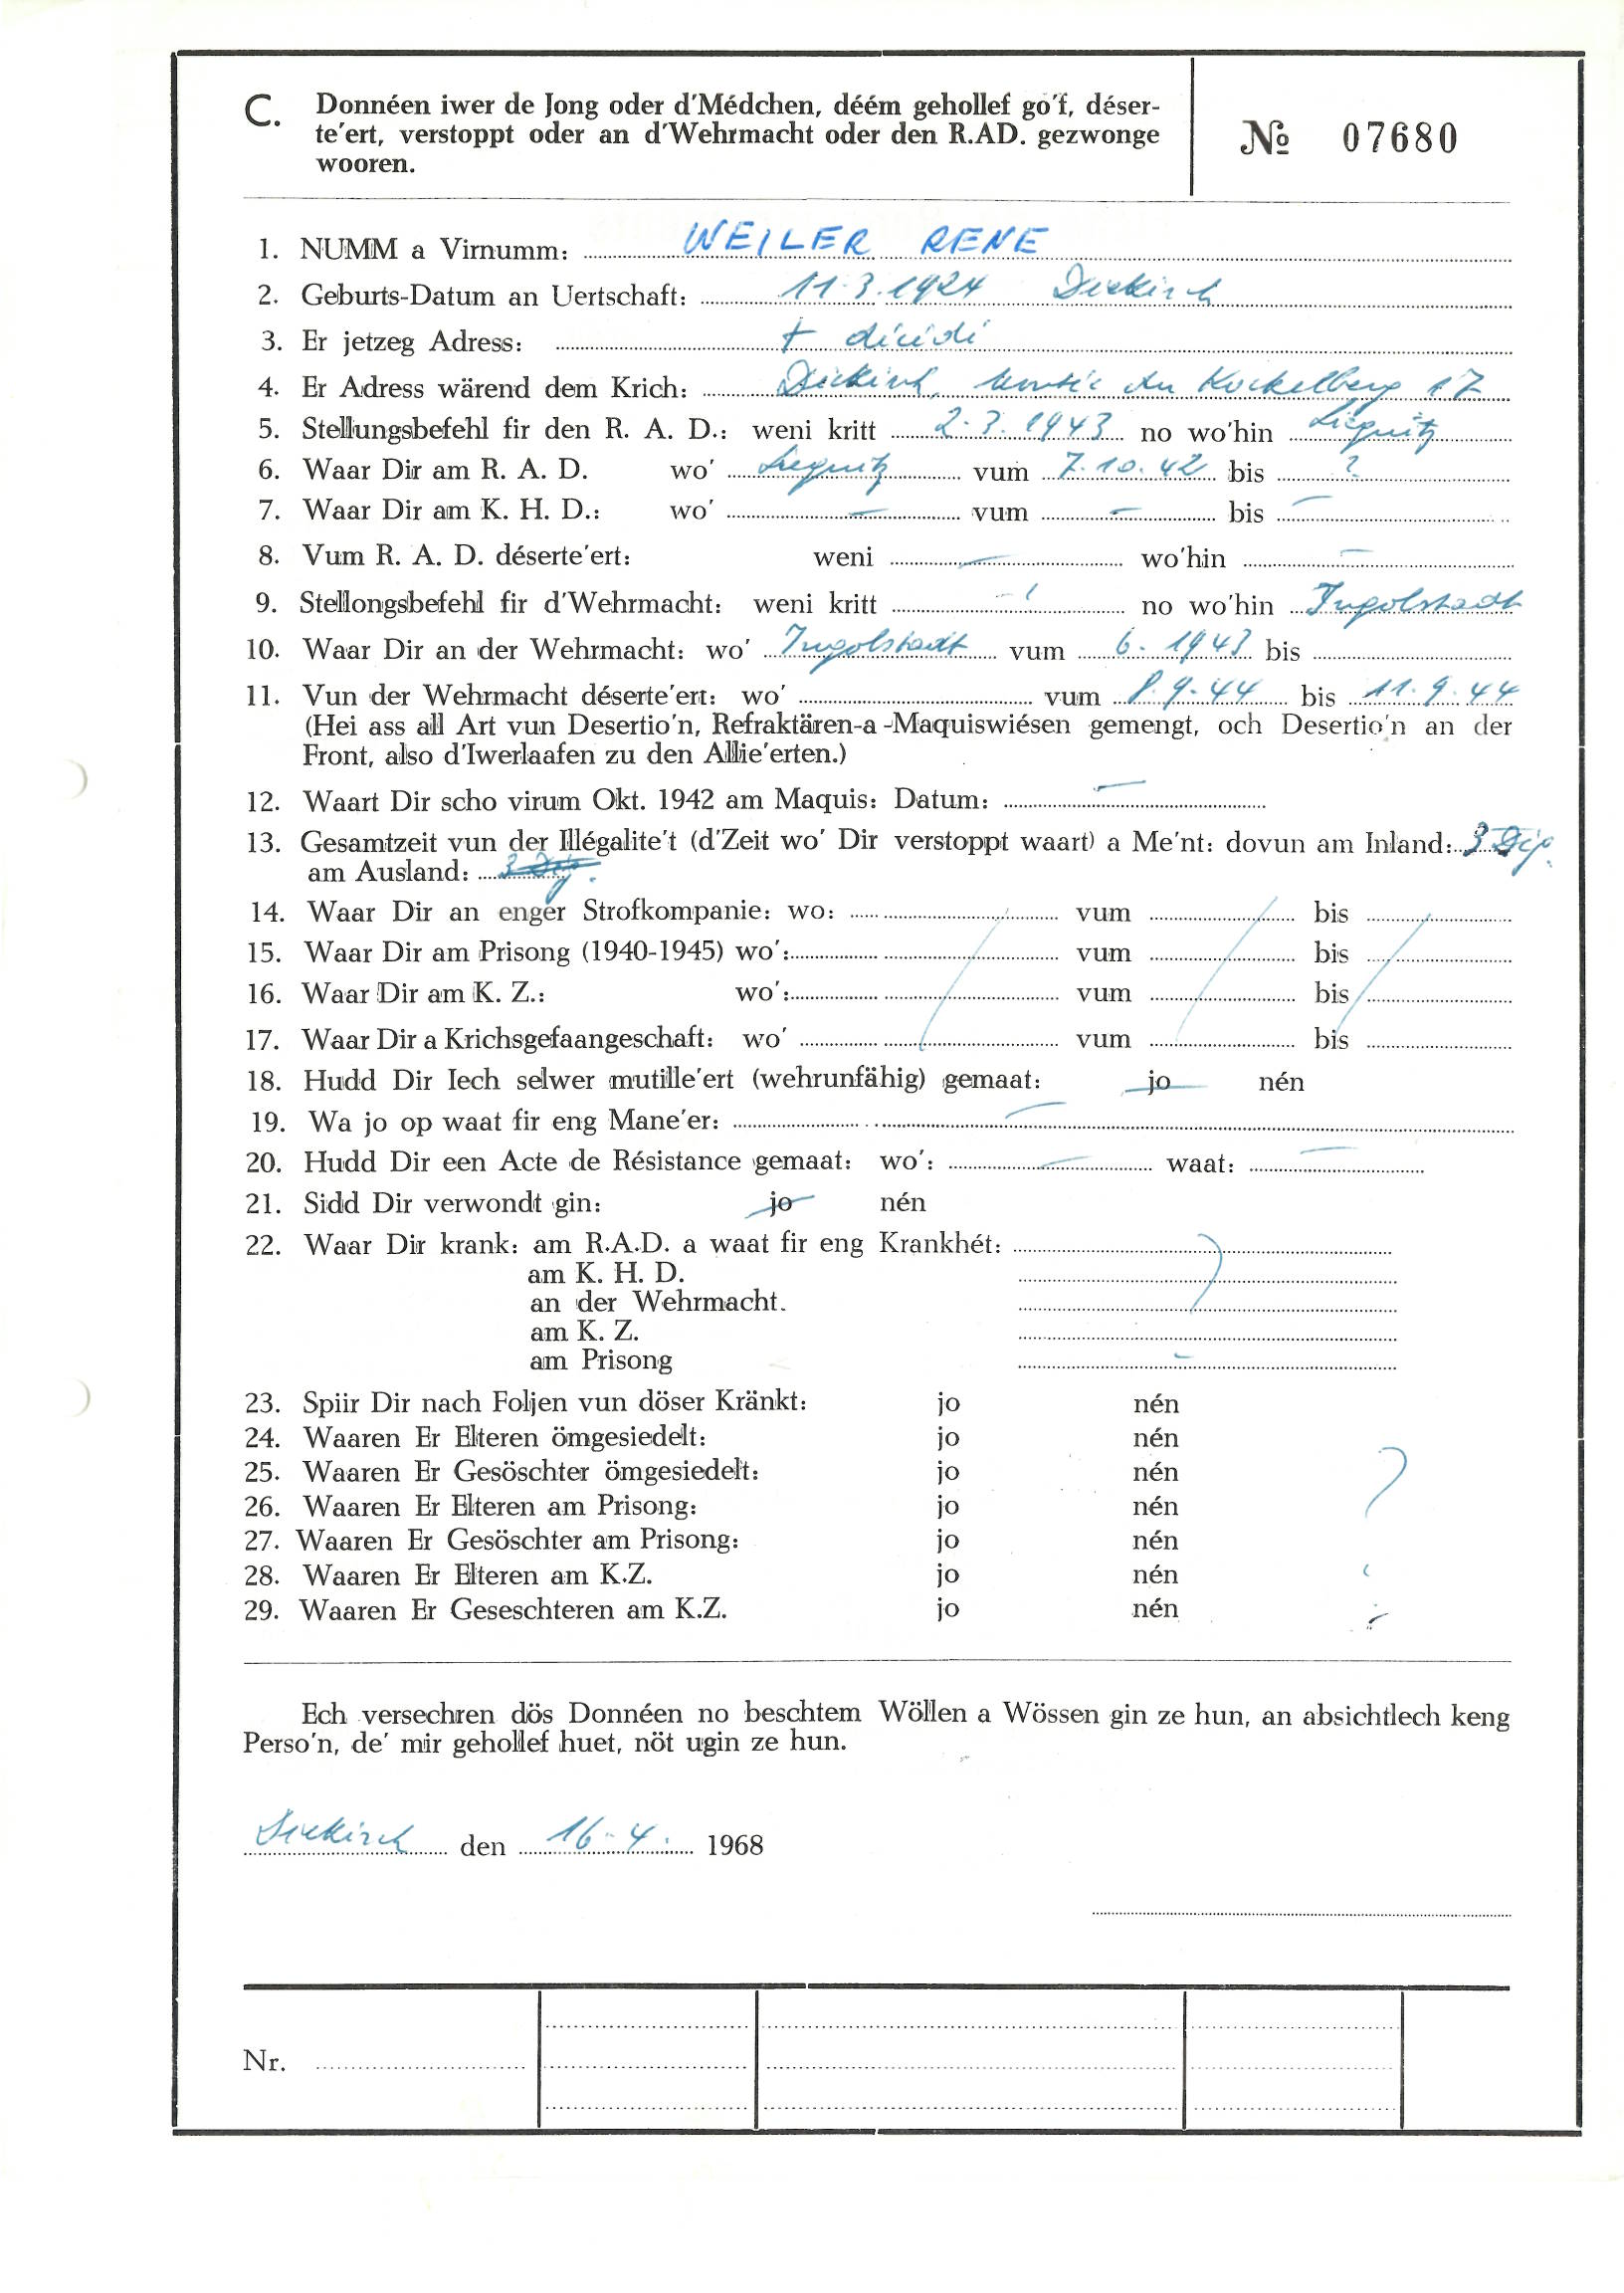 C. Donnéen iwer de Jong oder d'Médchen, déém gehollef go'f, déser-
te'ert, verstoppt oder an d'Wehrmacht oder den R.AD. gezwonge
wooren.
№ 07680
1. NUMM a Virnumm: WEILER RENE
2. Geburts-Datum an Uertschaft: 11.3.1924 Diekirch
3. Er jetzeg Adress: + dicidi
4. Er Adress wärend dem Krich: Diekirch, montée du Kockelberg 17
5. Stellungsbefehl fir den R. A. D.: weni kritt 2.3.1943 no wo'hin Liegnitz
6. Waar Dir am R. A. D. wo' Liegnitz vum 7.10.42 bis ?
7. Waar Dir am K. H. D.: wo' — vum — bis —
8. Vum R. A. D. déserte'ert: weni — wo'hin —
9. Stellongsbefehl fir d'Wehrmacht: weni kritt no wo'hin Ingolstadt
10. Waar Dir an der Wehrmacht: wo' Ingolstadt vum 6. 1943 bis
11. Vun der Wehrmacht déserte'ert: wo' vum 8.9.44 bis 11.9.44
(Hei ass all Art vun Desertio'n, Refraktären-a-Maquiswiésen gemengt, och Desertio'n an der
Front, also d'Iwerlaafen zu den Allie'erten.)
12. Waart Dir scho virum Okt. 1942 am Maquis: Datum: —
13. Gesamtzeit vun der Illégalite't (d'Zeit wo' Dir verstoppt waart) a Me'nt: dovun am Inland: 3
am Ausland: 3
14. Waar Dir an enger Strofkompanie: wo: vum bis
15. Waar Dir am Prisong (1940-1945) wo': vum bis
16. Waar Dir am K. Z.: wo': vum bis
17. Waar Dir a Krichsgefaangeschaft: wo' vum bis
18. Hudd Dir Iech selwer mutille'ert (wehrunfähig) gemaat: jo nén
19. Wa jo op waat fir eng Mane'er: —
20. Hudd Dir een Acte de Résistance gemaat: wo': — waat: —
21. Sidd Dir verwondt gin: jo nén
22. Waar Dir krank: am R.A.D. a waat fir eng Krankhét:
am K. H. D.
an der Wehrmacht.
am K. Z.
am Prisong
23. Spiir Dir nach Foljen vun döser Kränkt: jo nén
24. Waaren Er Elteren ömgesiedelt: jo nén
25. Waaren Er Gesöschter ömgesiedelt: jo nén
26. Waaren Er Elteren am Prisong: jo nén
27. Waaren Er Gesöschter am Prisong: jo nén
28. Waaren Er Elteren am K.Z. jo nén
29. Waaren Er Geseschteren am K.Z. jo nén
Ech versechren dös Donnéen no beschtem Wöllen a Wössen gin ze hun, an absichtlech keng
Perso'n, de' mir gehollef huet, nöt ugin ze hun.
Diekirch den 16.4. 1968
Nr.